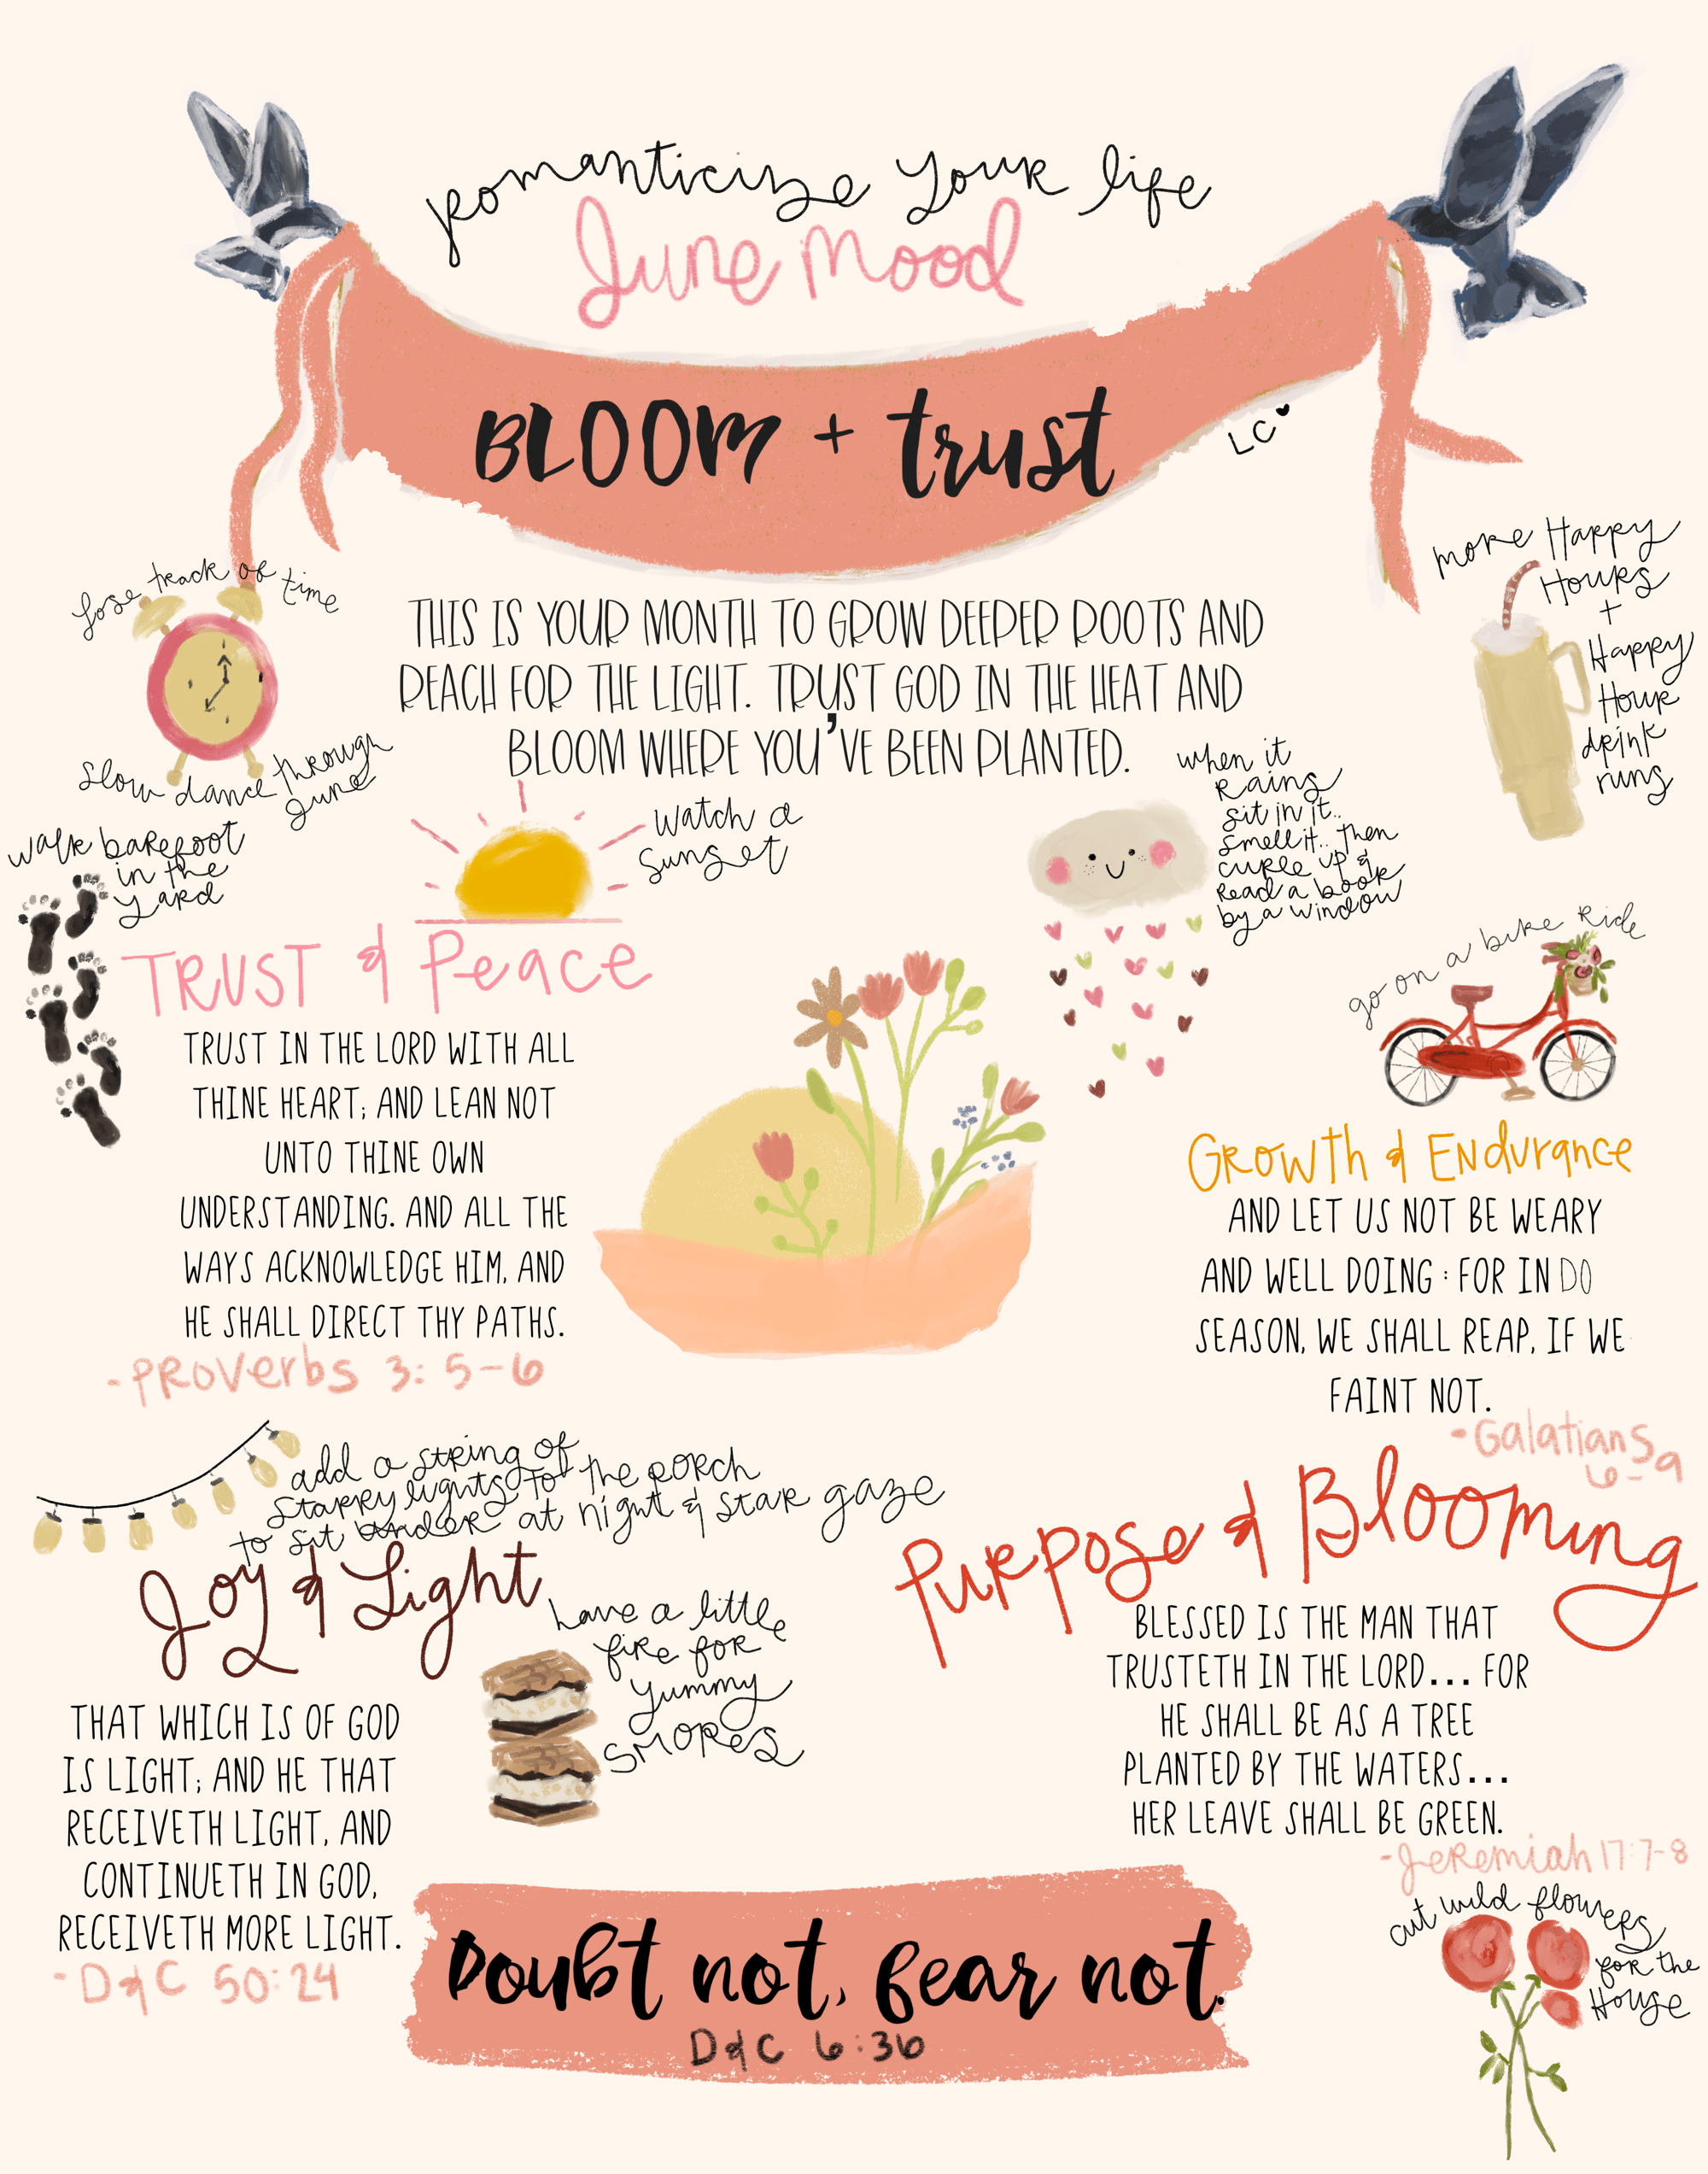 Romanticize your life
June Mood
BLOOM + trust
LC
lose track of time
slow dance through
June
more Happy
Hours
+
Happy
Hour
drink
runs
THIS IS YOUR MONTH TO GROW DEEPER ROOTS AND
REACH FOR THE LIGHT. TRUST GOD IN THE HEAT AND
BLOOM WHERE YOU'VE BEEN PLANTED.
walk barefoot
in the
yard
watch a
sunset
when it
Rains
sit in it..
smell it.. then
curle up &
Read a book
by a window
go on a bike Ride
TRUST & Peace
TRUST IN THE LORD WITH ALL
THINE HEART; AND LEAN NOT
UNTO THINE OWN
UNDERSTANDING. AND ALL THE
WAYS ACKNOWLEDGE HIM, AND
HE SHALL DIRECT THY PATHS.
-PROVerbs 3: 5-6
GROWth & ENdurance
AND LET US NOT BE WEARY
AND WELL DOING : FOR IN DO
SEASON, WE SHALL REAP, IF WE
FAINT NOT.
-Galatians
6-9
add a string of
starry lights to the porch
to sit under at night & star gaze
Joy & Light
THAT WHICH IS OF GOD
IS LIGHT; AND HE THAT
RECEIVETH LIGHT, AND
CONTINUETH IN GOD,
RECEIVETH MORE LIGHT.
-D&C 50:24
have a little
fire for
yummy
SMORES
Purpose & Blooming
BLESSED IS THE MAN THAT
TRUSTETH IN THE LORD... FOR
HE SHALL BE AS A TREE
PLANTED BY THE WATERS...
HER LEAVE SHALL BE GREEN.
-Jeremiah 17:7-8
cut wild flowers
for the
House
Doubt not, fear not.
D&C 6:36